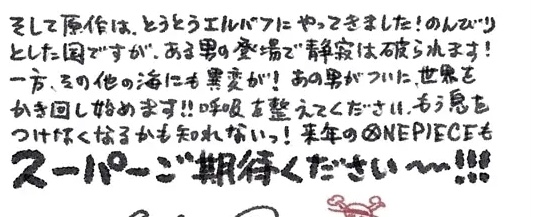 そして原作は、とうとうエルバフにやってきました！のんびり
とした国ですが、ある男の登場で静寂は破られます！
一方、その他の海にも異変が！あの男がついに、世界を
かき回し始めます!!呼吸を整えてください、もう息を
つけなくなるかも知れないっ！来年のONEPIECEも
スーパーご期待ください〜!!!